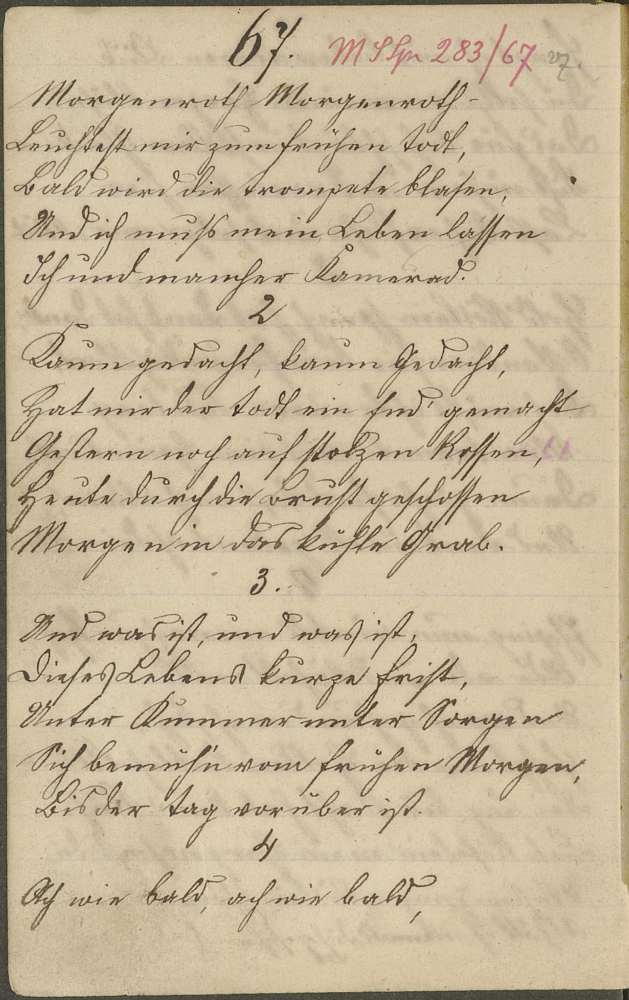 67. MSSpr 283/67 vz.
Morgenroth Morgenroth-
Leuchtest mir zum frühen Todt,
Bald wird die trompete blasen,
Und ich muß mein Leben lassen
Ich und mancher Kamerad.
2
Kaum gedacht, kaum Gedacht,
Hat mir der todt ein End' gemacht
Gestern noch auf stolzen Rossen,
Heute durch die Brust geschossen
Morgen in das kühle Grab.
3.
Und was ist, und was ist,
Dieses Lebens kurze frist,
Unter Kummer unter Sorgen
Sich bemüh'n vom frühen Morgen,
Bis der tag vorüber ist.
4
Ach wie bald, ach wie bald,